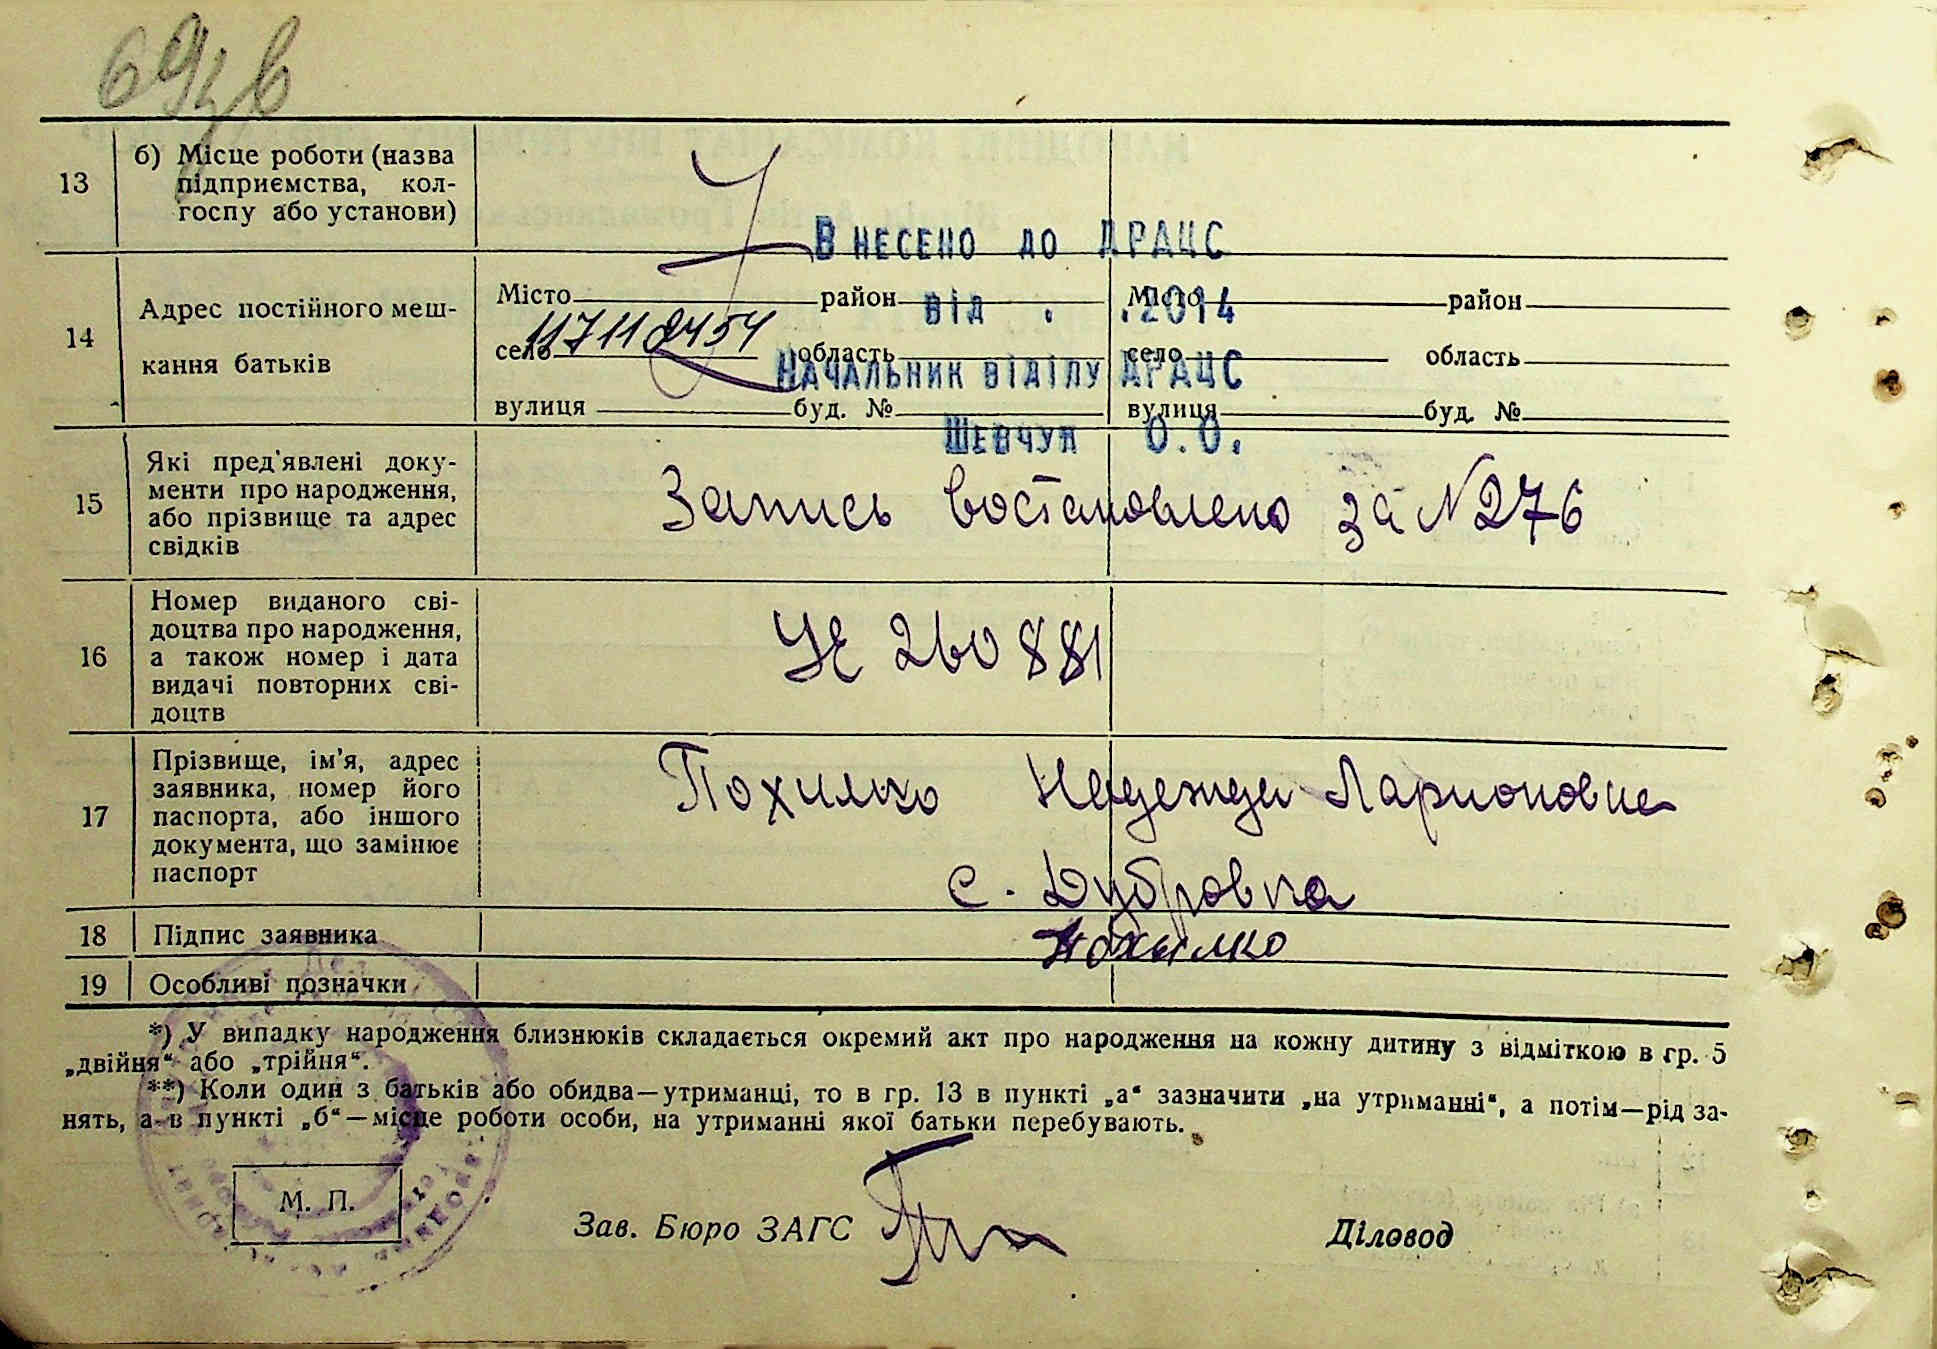 13
б) Місце роботи (назва
підприємства, кол-
госпу або установи)
Внесено до ДРАЦС
14
Адрес постійного меш-
кання батьків
Місто район Місто район
від . .2014
село область село область
Начальник відділу ДРАЦС
вулиця буд. № вулиця буд. №
Шевчук О.О.
15
Які пред'явлені доку-
менти про народження,
або прізвище та адрес
свідків
Запись востановлено за №276
16
Номер виданого сві-
доцтва про народження,
а також номер і дата
видачі повторних сві-
доцтв
260881
17
Прізвище, ім'я, адрес
заявника, номер його
паспорта, або іншого
документа, що замінює
паспорт
Похилко Надежда Ларионовна
с. Дубровка
18 Підпис заявника
Похилко
19 Особливі позначки
*) У випадку народження близнюків складається окремий акт про народження на кожну дитину з відміткою в гр. 5
„двійня“ або „трійня“.
**) Коли один з батьків або обидва—утриманці, то в гр. 13 в пункті „а“ зазначити „на утриманні“, а потім—рід за-
нять, а в пункті „б“—місце роботи особи, на утриманні якої батьки перебувають.
М. П.
Зав. Бюро ЗАГС Діловод